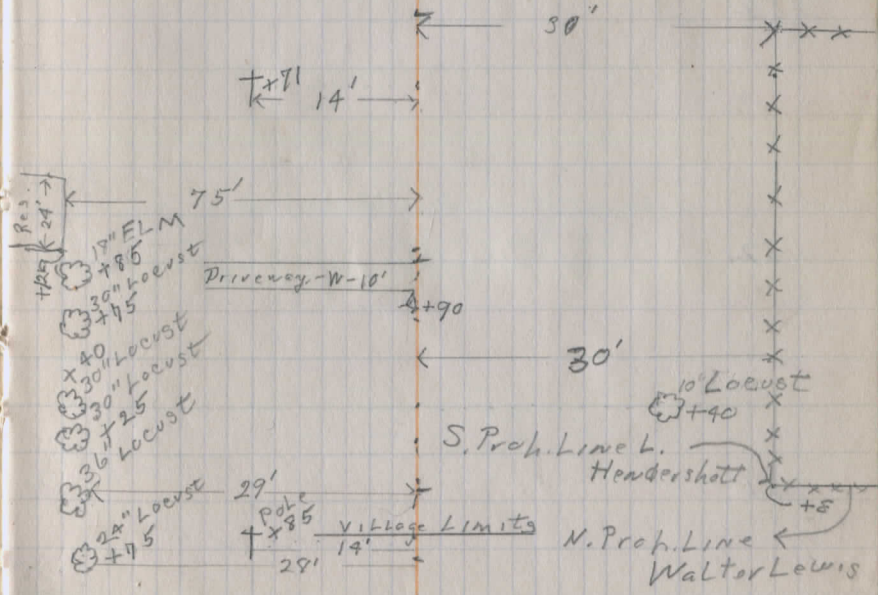 30'
+71
14'
75'
Res.
24'
18" ELM
+85
30" Locust
+75
Driveway-W-10'
+90
x40
30" Locust
30" Locust
+25
36" Locust
30'
10" Locust
+40
S. Proh. Line L.
Hendershott
+8
29'
24" Locust
+75
Pole
x85
Village Limits
14'
28'
N. Proh. Line
Walter Lewis